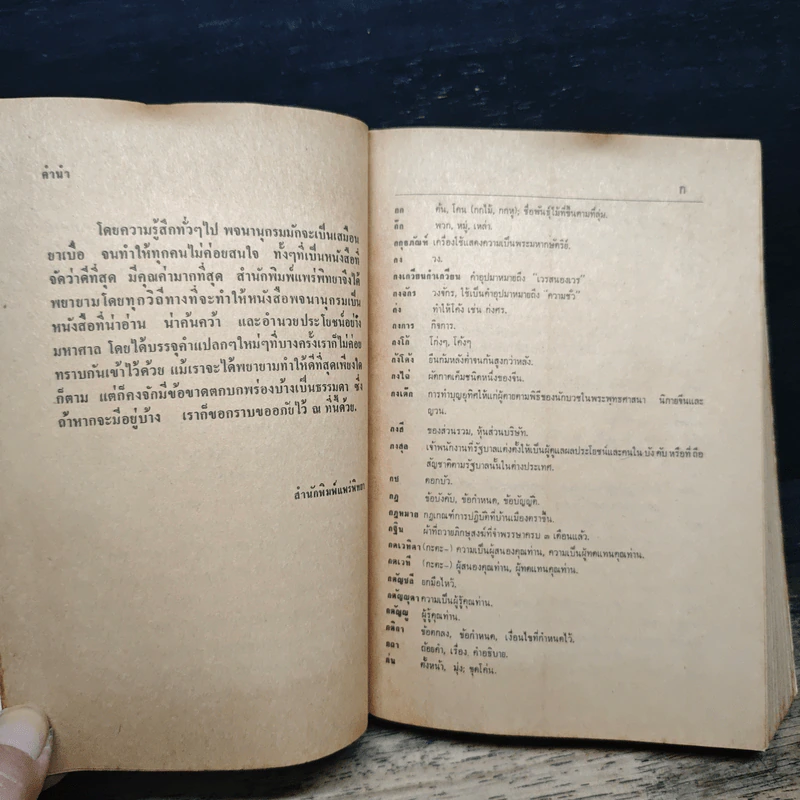 คำนำ
โดยความรู้สึกทั่วๆไป พจนานุกรมมักจะเป็นเสมือน
ยาเบื่อ จนทำให้ทุกคนไม่ค่อยสนใจ ทั้งๆที่เป็นหนังสือที่
จัดว่าดีที่สุด มีคุณค่ามากที่สุด สำนักพิมพ์แพร่พิทยาจึงได้
พยายามโดยทุกวิถีทางที่จะทำให้หนังสือพจนานุกรมเป็น
หนังสือที่น่าอ่าน น่าค้นคว้า และอำนวยประโยชน์อย่าง
มหาศาล โดยได้บรรจุคำแปลกๆใหม่ๆที่บางครั้งเราก็ไม่ค่อย
ทราบกันเข้าไว้ด้วย แม้เราจะได้พยายามทำให้ดีที่สุดเพียงใด
ก็ตาม แต่ก็คงจักมีข้อขาดตกบกพร่องบ้างเป็นธรรมดา ซึ่ง
ถ้าหากจะมีอยู่บ้าง เราก็ขอกราบขออภัยไว้ ณ ที่นี้ด้วย.
สำนักพิมพ์แพร่พิทยา
ก
กก ต้น, โคน (กกไม้, กกหู); ชื่อพันธุ์ไม้ที่ขึ้นตามที่ลุ่ม.
ก๊ก พวก, หมู่, เหล่า.
กกุธภัณฑ์ เครื่องใช้แสดงความเป็นพระมหากษัตริย์.
กง วง.
กงเกวียนกำเกวียน คำอุปมาหมายถึง "เวรสนองเวร"
กงจักร วงจักร, ใช้เป็นคำอุปมาหมายถึง "ความชั่ว"
ก่ง ทำให้โค้ง เช่น ก่งศร.
กงการ กิจการ.
กงโก้ โก่งๆ, โค้งๆ
กังโค้ง ยืนก้มหลังต่ำจนก้นสูงกว่าหลัง.
กงไฉ่ ผักกาดเค็มชนิดหนึ่งของจีน.
กงเต๊ก การทำบุญอุทิศให้แก่ผู้ตายตามพิธีของนักบวชในพระพุทธศาสนา นิกายจีนและ
ญวน.
กงสี ของส่วนรวม, หุ้นส่วนบริษัท.
กงสุล เจ้าพนักงานที่รัฐบาลแต่งตั้งให้เป็นผู้ดูแลผลประโยชน์และคนใน บังคับ หรือที่ ถือ
สัญชาติตามรัฐบาลนั้นในต่างประเทศ.
กช ดอกบัว.
กฎ ข้อบังคับ, ข้อกำหนด, ข้อบัญญัติ.
กฎหมาย กฎเกณฑ์การปฏิบัติที่บ้านเมืองตราขึ้น.
กฐิน ผ้าที่ถวายภิกษุสงฆ์ที่จำพรรษาครบ ๓ เดือนแล้ว.
กตเวทิตา (กะตะ-) ความเป็นผู้สนองคุณท่าน, ความเป็นผู้ทดแทนคุณท่าน.
กตเวที (กะตะ-) ผู้สนองคุณท่าน, ผู้ทดแทนคุณท่าน.
กตัญชลี ยกมือไหว้.
กตัญญุตา ความเป็นผู้รู้คุณท่าน.
กตัญญู ผู้รู้คุณท่าน.
กติกา ข้อตกลง, ข้อกำหนด, เงื่อนไขที่กำหนดไว้.
กถา ถ้อยคำ, เรื่อง, คำอธิบาย.
ก่น ตั้งหน้า, มุ่ง; ขุดโค่น.